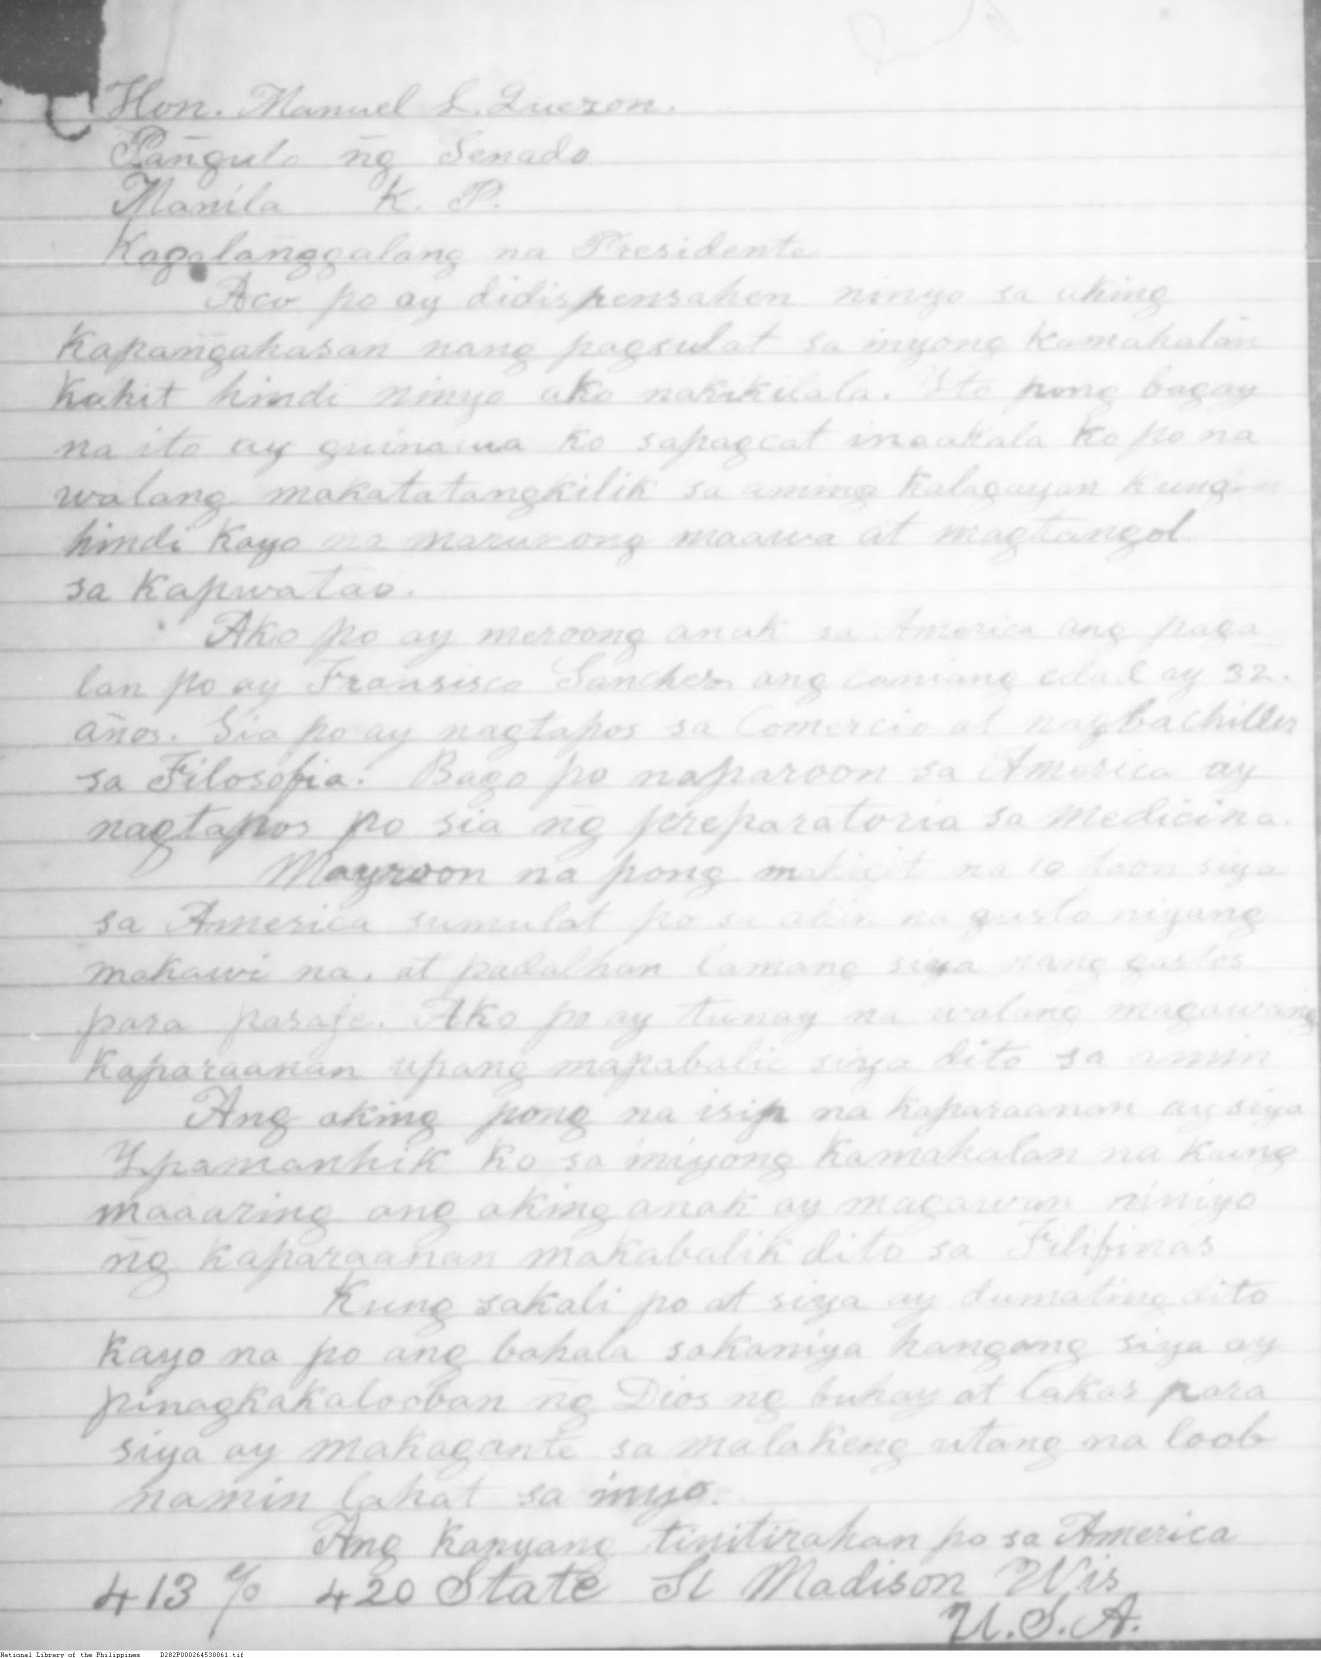 Hon. Manuel L. Quezon.
Pañgulo ñg Senado
Manila K. P.
Kagalanggalang na Presidente
Aco po ay didispensahen ninyo sa aking
kapañgahasan nang pagsulat sa inyong kamahalan
kahit hindi ninyo ako nakikilala. Ito pong bagay
na ito ay guinawa ko sapagcat inaakala ko po na
walang makatatangkilik sa aming kalagayan kung
hindi kayo na marunong maawa at magtangol
sa kapwa tao.
Ako po ay meroong anak sa America ang paga
lan po ay Fransisco Sanchez ang caniang edad ay 32.
años. Sia po ay nagtapos sa Comercio at nagbachiller
sa Filosofia. Bago po naparoon sa America ay
nagtapos po sia ñg preparatoria sa medicina.
Mayroon na pong mahigit na 10 taon siya
sa America sumulat po sa akin na gusto niyang
makawi na, at padalhan lamang siya nang gastos
para pasaje. Ako po ay tunay na walang magawang
kaparaanan upang mapabalic siya dito sa amin
Ang aking pong na isip na kaparaanan ay siya
Ypamanhik ko sa iniyong kamahalan na kung
maaaring ang aking anak ay magawan niniyo
ñg kaparaanan makabalik dito sa Filipinas
Kung sakali po at siya ay dumating dito
kayo na po ang bahala sakaniya hangang siya ay
pinagkakalooban ñg Dios ñg buhay at lakas para
siya ay makagante sa malakeng utang na loob
namin lahat sa inyo.
Ang kanyang tinitirahan po sa America
413 % 420 State St Madison Wis
U.S.A.
National Library of the Philippines D282P000264530061.tif